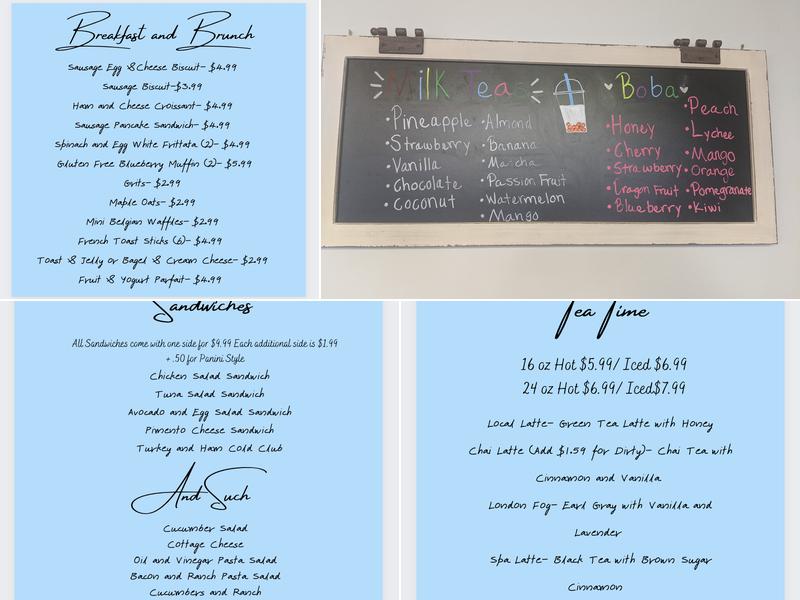 Breakfast and Brunch
Sausage Egg & Cheese Biscuit- $4.99
Sausage Biscuit-$3.99
Ham and Cheese Croissant- $4.99
Sausage Pancake Sandwich- $4.99
Spinach and Egg White Frittata (2)- $4.99
Gluten Free Blueberry Muffin (2)- $5.99
Grits- $2.99
Maple Oats- $2.99
Mini Belgian Waffles- $2.99
French Toast Sticks (6)- $4.99
Toast & Jelly or Bagel & Cream Cheese- $2.99
Fruit & Yogurt Parfait- $4.99
Milk Teas
•Pineapple
•Strawberry
•Vanilla
•Chocolate
•Coconut
•Almond
•Banana
•Matcha
•Passion Fruit
•Watermelon
•Mango
Boba
•Honey
•Cherry
•Strawberry
•Dragon Fruit
•Blueberry
•Peach
•Lychee
•Mango
•Orange
•Pomegranate
•Kiwi
Sandwiches
All Sandwiches come with one side for $9.99 Each additional side is $1.99
+ .50 for Panini Style
Chicken Salad Sandwich
Tuna Salad Sandwich
Avocado and Egg Salad Sandwich
Pimento Cheese Sandwich
Turkey and Ham Cold Club
And Such
Cucumber Salad
Cottage Cheese
Oil and Vinegar Pasta Salad
Bacon and Ranch Pasta Salad
Cucumbers and Ranch
Tea Time
16 oz Hot $5.99/ Iced $6.99
24 oz Hot $6.99/ Iced$7.99
Local Latte- Green Tea Latte with Honey
Chai Latte (Add $1.59 for Dirty)- Chai Tea with
Cinnamon and Vanilla
London Fog- Earl Gray with Vanilla and
Lavender
Spa Latte- Black Tea with Brown Sugar
Cinnamon